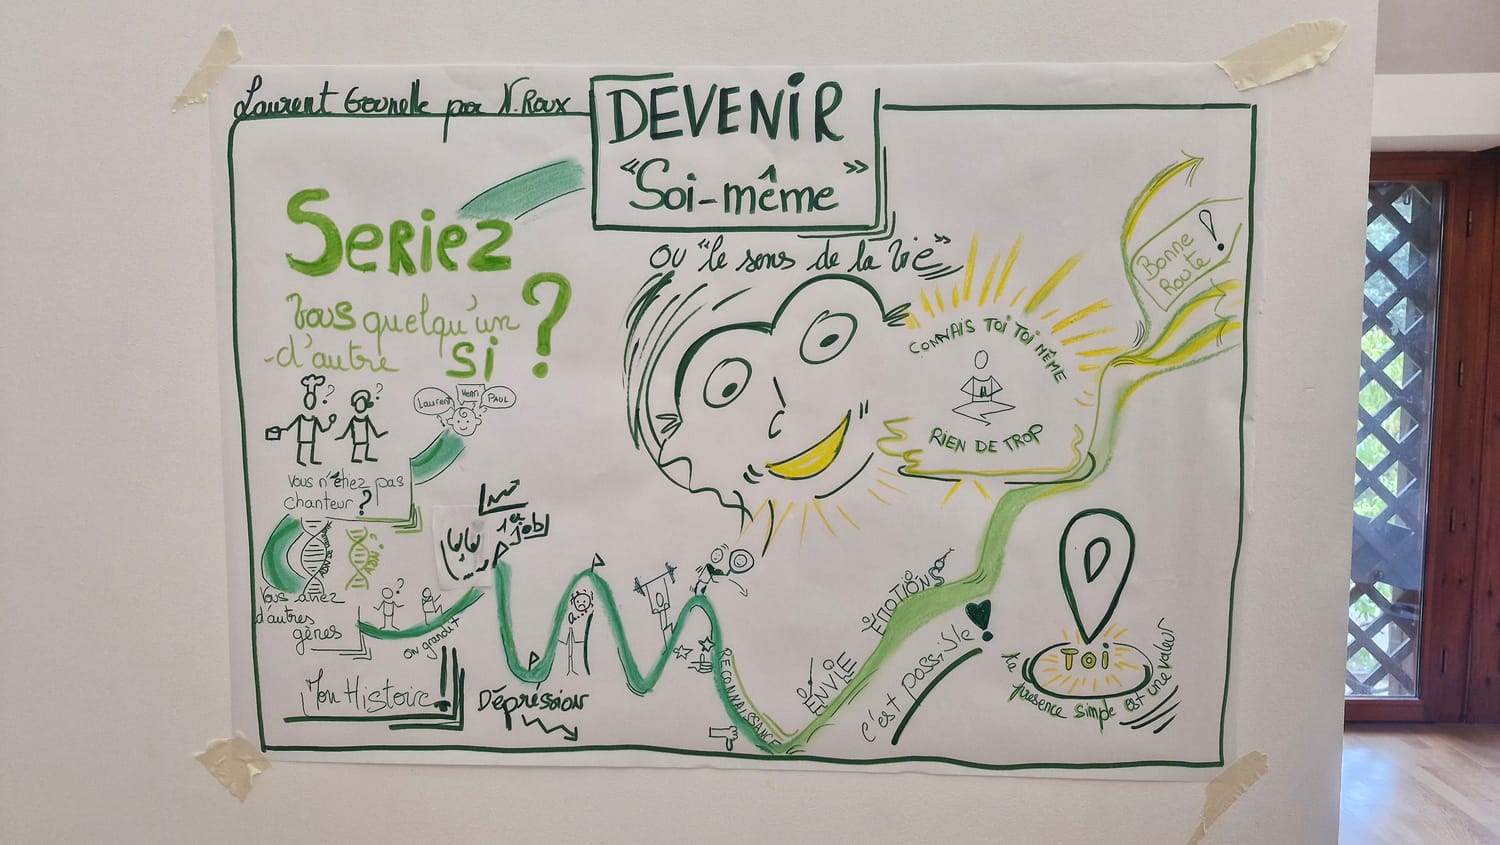 Laurent Gounelle par N. Roux
DEVENIR
"Soi-même"
ou "le sens de la vie"
SERIEZ
Vous quelqu'un
d'autre si ?
Laurent
Henri
PAUL
Vous n'étiez pas
chanteur ?
Vous aviez
d'autres
gènes
on grandit
Mon Histoire !
1er
job
Dépression
RECONNAISSANCE
ENVIE
ÉMOTIONS
c'est possible
CONNAIS TOI TOI MÊME
RIEN DE TROP
Bonne
Route !
TOI
ta présence simple est une valeur